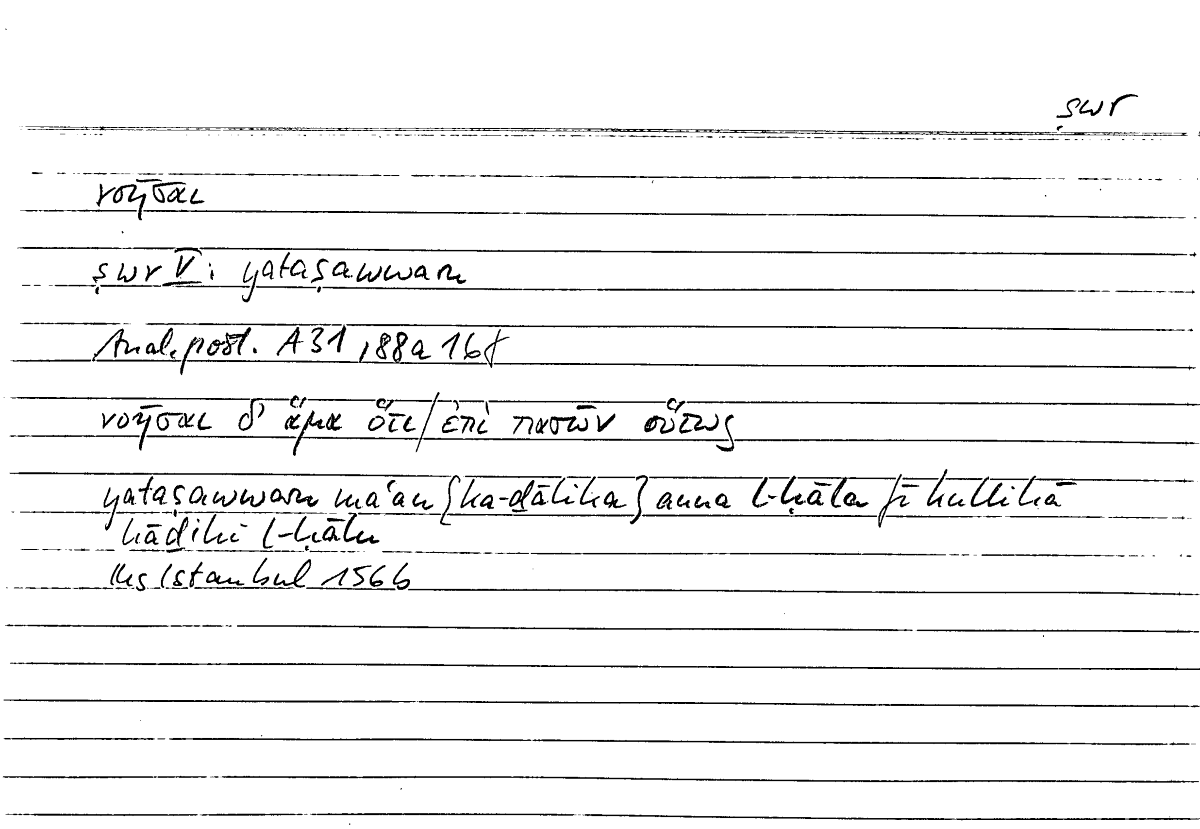 ṣwr
νοῆσαι
ṣwr V: yataṣawwaru
Anal. post. A 31, 88a 16f
νοῆσαι δ' ἅμα ὅτι / ἐπὶ πασῶν οὕτως
yataṣawwaru maʿan {ka-ḏālika} anna l-ḥāla fī kullihā
hāḏihi l-ḥālu
Hs Istanbul 156b